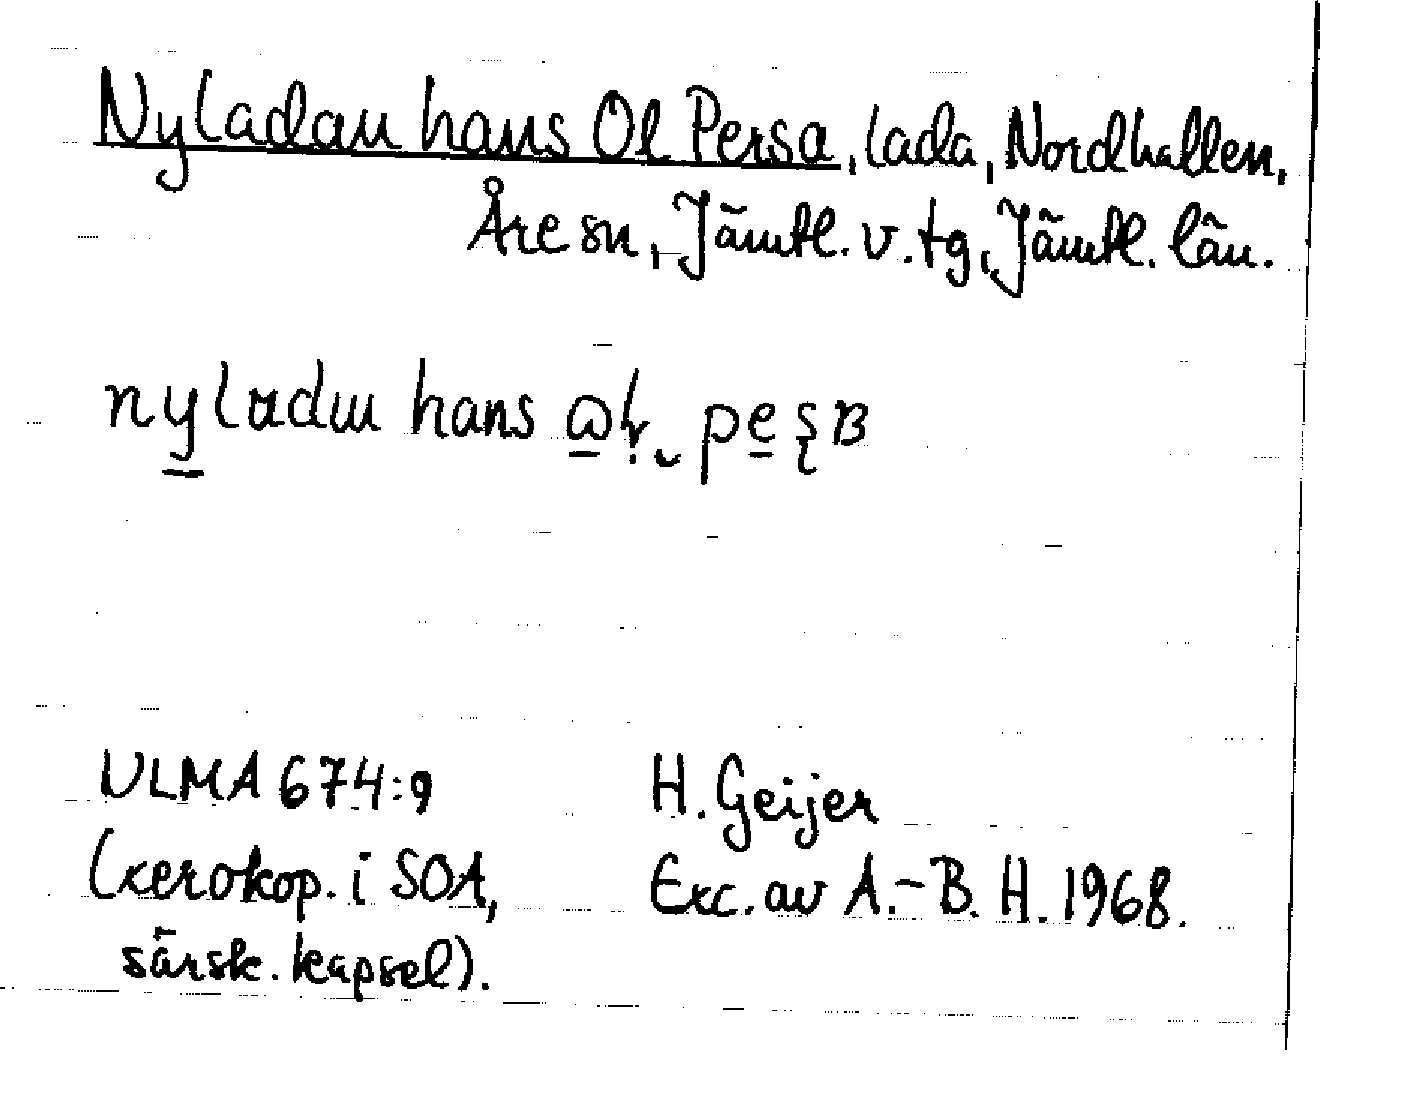 Nyladan hans Ol Persa, lada, Nordhallen,
Åre sn, Jämtl. v. tg, Jämtl. län.
hans
ULMA 674:9
H. Geijer
(xerokop. i SOA,
Exc. av A.-B. H. 1968.
särsk. kapsel).